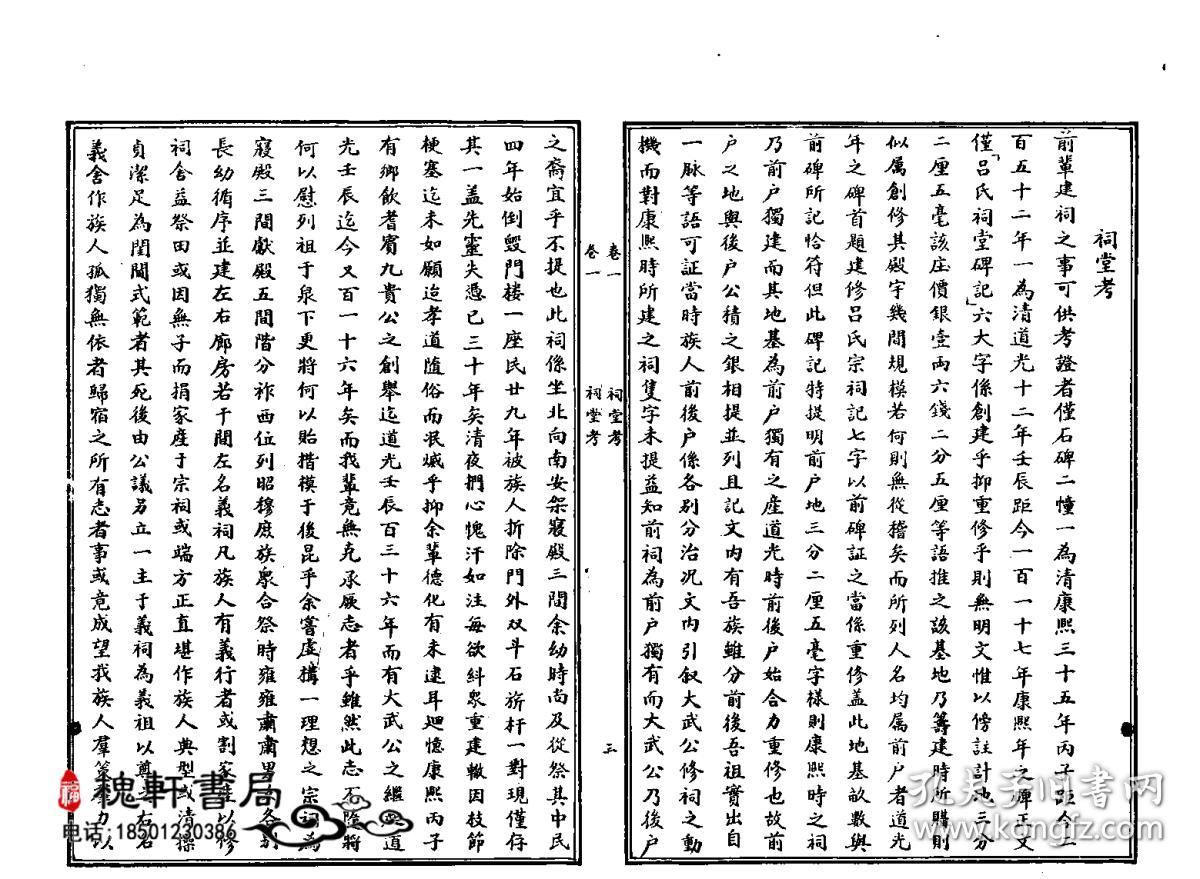 祠堂考
前輩建祠之事可供考證者僅石碑二幢一為清康熙三十五年丙子距今二
百五十二年一為清道光十二年壬辰距今一百一十七年康熙年之碑正文
僅「呂氏祠堂碑記」六大字係創建乎抑重修乎則無明文惟以傍註計地三分
二厘五毫該庄價銀壹両六錢二分五厘等語推之該基地乃籌建時所購則
似属創修其殿宇幾間規模若何則無從稽矣而所列人名均属前户者道光
年之碑首題建修呂氏宗祠記七字以前碑証之當係重修盖此地基畝數與
前碑所記恰符但此碑記特提明前户地三分二厘五毫字樣則康熙時之祠
乃前户獨建而其地基為前户獨有之産道光時前後户始合力重修也故前
户之地與後户公積之銀相提並列且記文内有吾族雖分前後吾祖實出自
一脉等語可証當時族人前後户係各别分治况文内引叙大武公修祠之動
機而對康熙時所建之祠隻字未提益知前祠為前户獨有而大武公乃後户
卷一
祠堂考
三
卷一
祠堂考
之裔宜乎不提也此祠係坐北向南安架寢殿三間余幼時尚及從祭其中民
四年始倒毁門楼一座民廿九年被族人折除門外双斗石旂杆一對現僅存
其一盖先靈失憑已三十年矣清夜捫心愧汗如注每欲糾衆重建輙因枝節
梗塞迄未如願迨孝道随俗而泯烕乎抑余輩德化有未逮耳廻憶康熙丙子
有鄉飲耆賓九貴公之創舉迄道光壬辰百三十六年而有大武公之繼
道
光壬辰迄今又百一十六年矣而我輩竟無克承厥志者乎雖然此志不
將
何以慰列祖于泉下更將何以貽楷模于後昆乎余嘗虚構一理想之宗祠為
寢殿三間獻殿五間階分祚西位列昭穆庶族衆合祭時雍雍肅肅
各
長幼循序並建左右廊房若干間左名義祠凡族人有義行者或割家産以修
祠舍益祭田或因無子而捐家産于宗祠或端方正直堪作族人典型或清操
貞潔足為閨閫式範者其死後由公議另立一主于義祠為義祖以
右名
義舍作族人孤獨無依者歸宿之所有志者事或竟成望我族人羣策羣力以
福
槐軒書局
电话:18501230386
孔夫子旧书网
www.kongfz.com